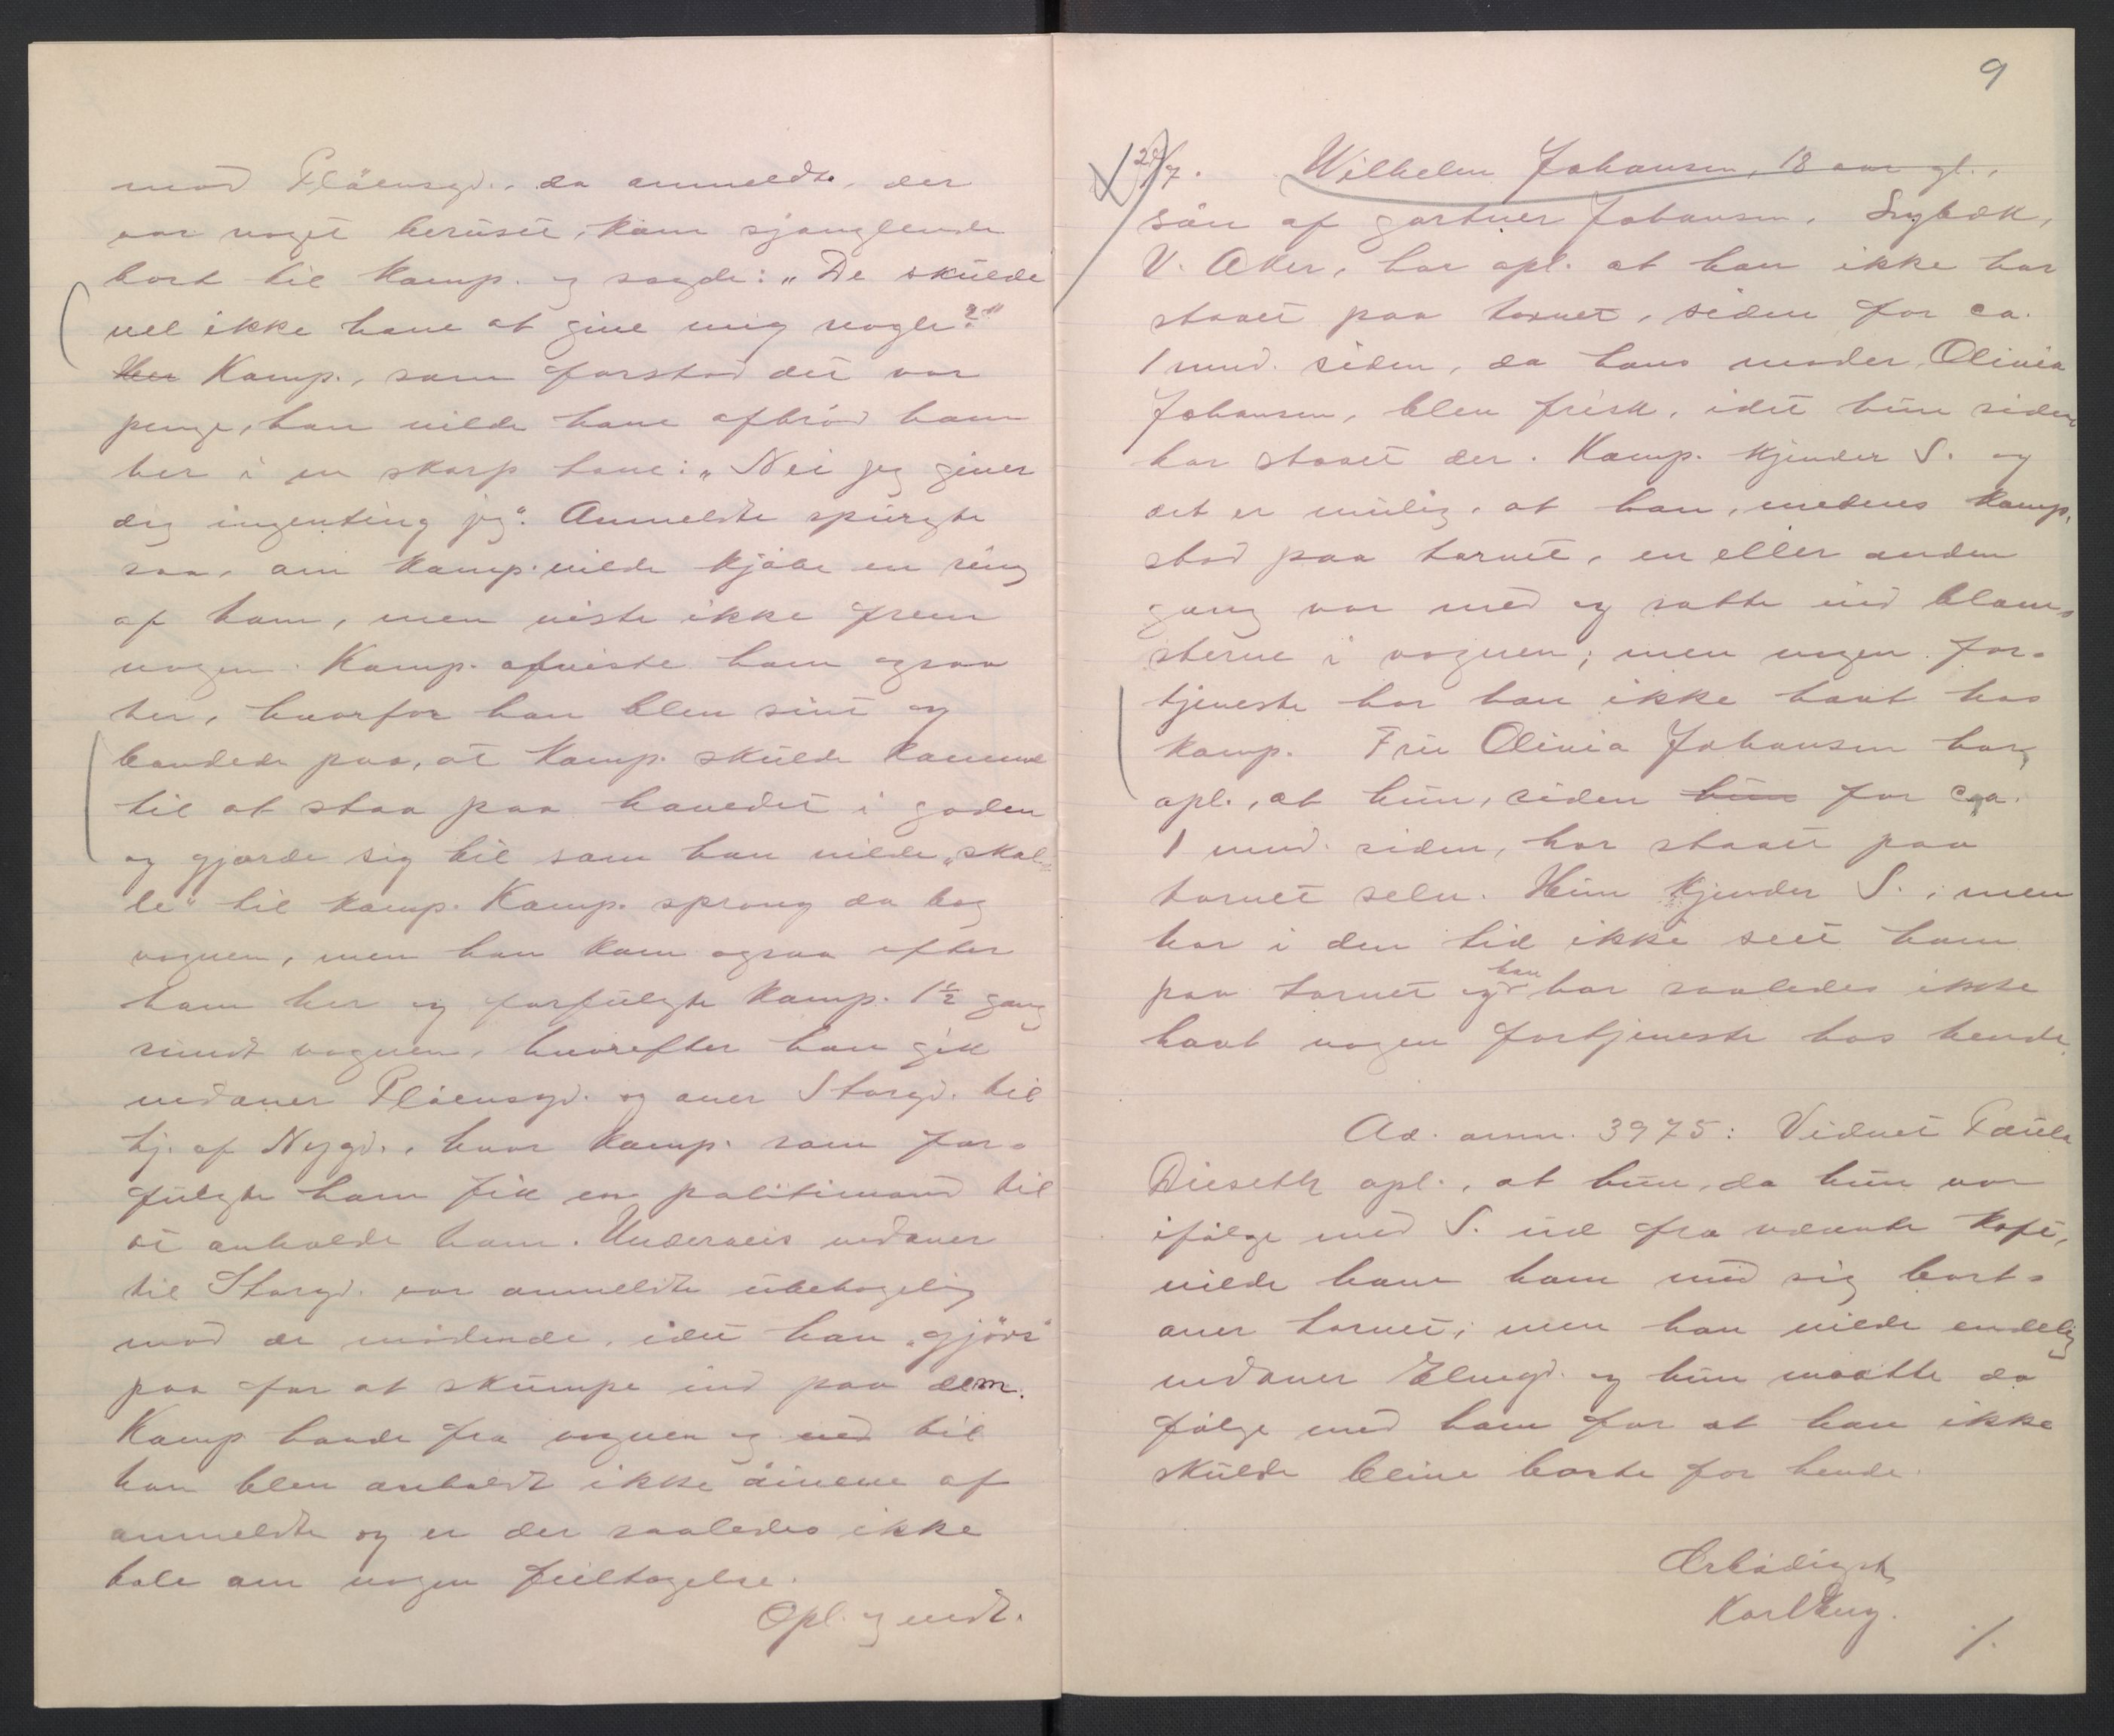 mod Pløensgd., da anmeldte, der
var noget beruset, kom sjanglende
bort til Komp. og sagde: „De skulde
vel ikke have at give mig nogle?"
Her Komp., som forstod det var
penge, han vilde have afbrød ham
her i en skarp tone: „Nei jeg giver
dig ingenting jeg". Anmeldte spurgte
saa, om Komp. vilde kjøbe en ring
af ham, men viste ikke frem
nogen. Komp. afviste ham ogsaa
her, hvorfor han blev sint og
bandede paa, at Komp. skulde komme
til at staa paa hovedet i gaden
og gjorde sig til som han vilde „skal-
le" til Komp. Komp. sprang da bag
vognen, men han kom ogsaa efter
ham her og forfulgte Komp. 1½ gang
rundt vognen, hvorefter han gik
nedover Pløensgd. og over Storgd. til
hj. af Nygd., hvor Komp. som for-
fulgte ham fik en politimand til
at anholde ham. Underveis nedover
til Storgd. var anmeldte ubehagelig
mod de mødende, idet han „gjør"
paa for at skumpe ind paa dem.
Komp havde fra vognen og ned til
han blev anholdt ikke øinene af
anmeldte og er der saaledes ikke
tale om nogen feiltagelse.
Opl. og vedt.
9
29/7. Wilhelm Johansen, 18 aar gl.,
søn af gartner Johansen, Lysbæk,
V. Aker, har opl. at han ikke har
staaet paa torvet, siden for ca.
1 mnd. siden, da hans moder, Olivia
Johansen, blev frisk, idet hun siden
har staaet der. Komp. kjender S. og
det er mulig, at han, medens Komp.
stod paa torvet, en eller anden
gang var med og satte ind blom-
sterne i vognen; men nogen for-
tjeneste har han ikke havt hos
Komp. Fru Olivia Johansen har
opl., at hun, siden hun for ca.
1 mnd. siden, har staaet paa
torvet selv. Hun kjender S.; men
har i den tid ikke seet ham
paa torvet og han har saaledes ikke
havt nogen fortjeneste hos hende.
Ad. anm. 3975: Vidnet Paula
Dieseth opl., at hun, da hun var
ifølge med S. ud fra nævnte kafe,
vilde have ham med sig bort-
over torvet; men han vilde endelig
nedover Elvegd. og hun maatte da
følge med ham for at han ikke
skulde blive borte for hende.
Ærbødigst
Karl Aug.
./.